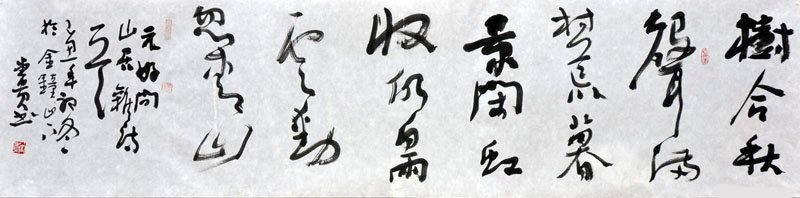 樹合秋
聲滿
村荒暮
景閑虹
收仍白雨
雲動
忽青山
元好問
山居雜詩
丑年初冬
於金鐘山下